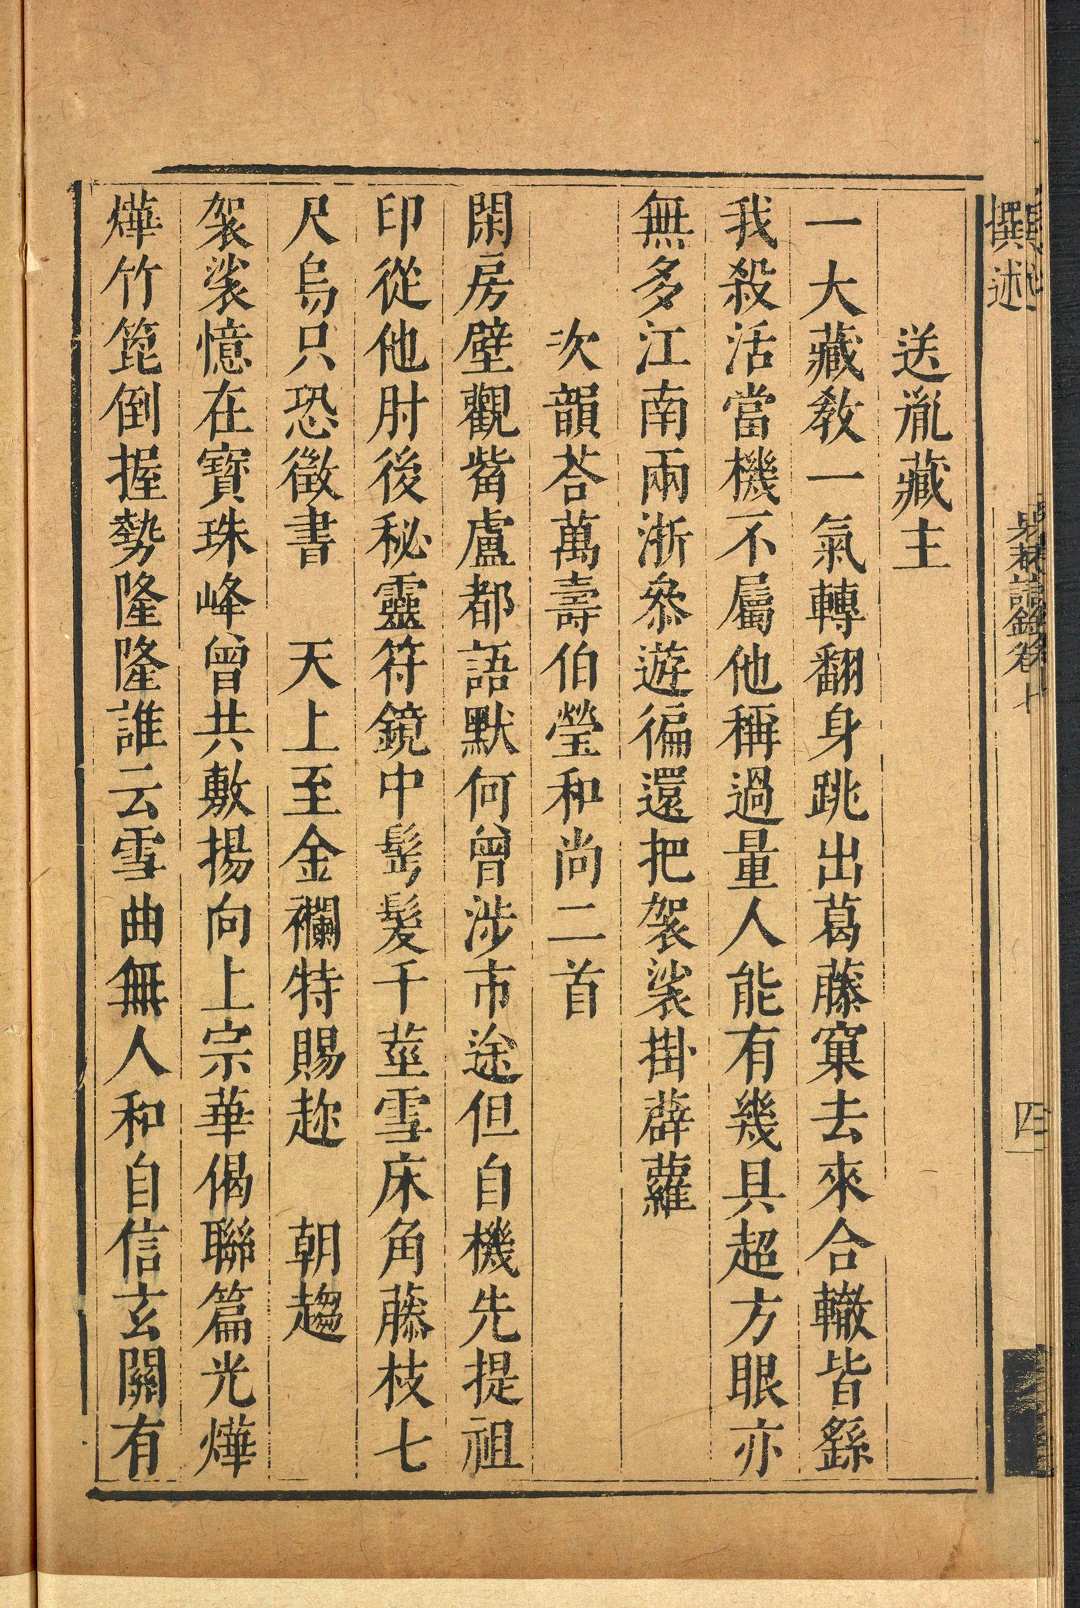 撰述
四
送胤藏主
一大藏教一氣轉翻身跳出葛藤窠去來合轍皆繇
我殺活當機不屬他稱過量人能有幾具超方眼亦
無多江南兩浙叅遊徧還把袈裟掛薜蘿
次韻荅萬壽伯瑩和尚二首
閑房壁觀觜盧都語默何曾涉市途但自機先提祖
印從他肘後秘靈符鏡中髩髮千莖雪床角藤枝七
尺烏只恐徵書 天上至金襴特賜趂 朝趨
袈裟憶在寶珠峰曾共敷揚向上宗華偈聯篇光燁
燁竹篦倒握勢隆隆誰云雪曲無人和自信玄關有